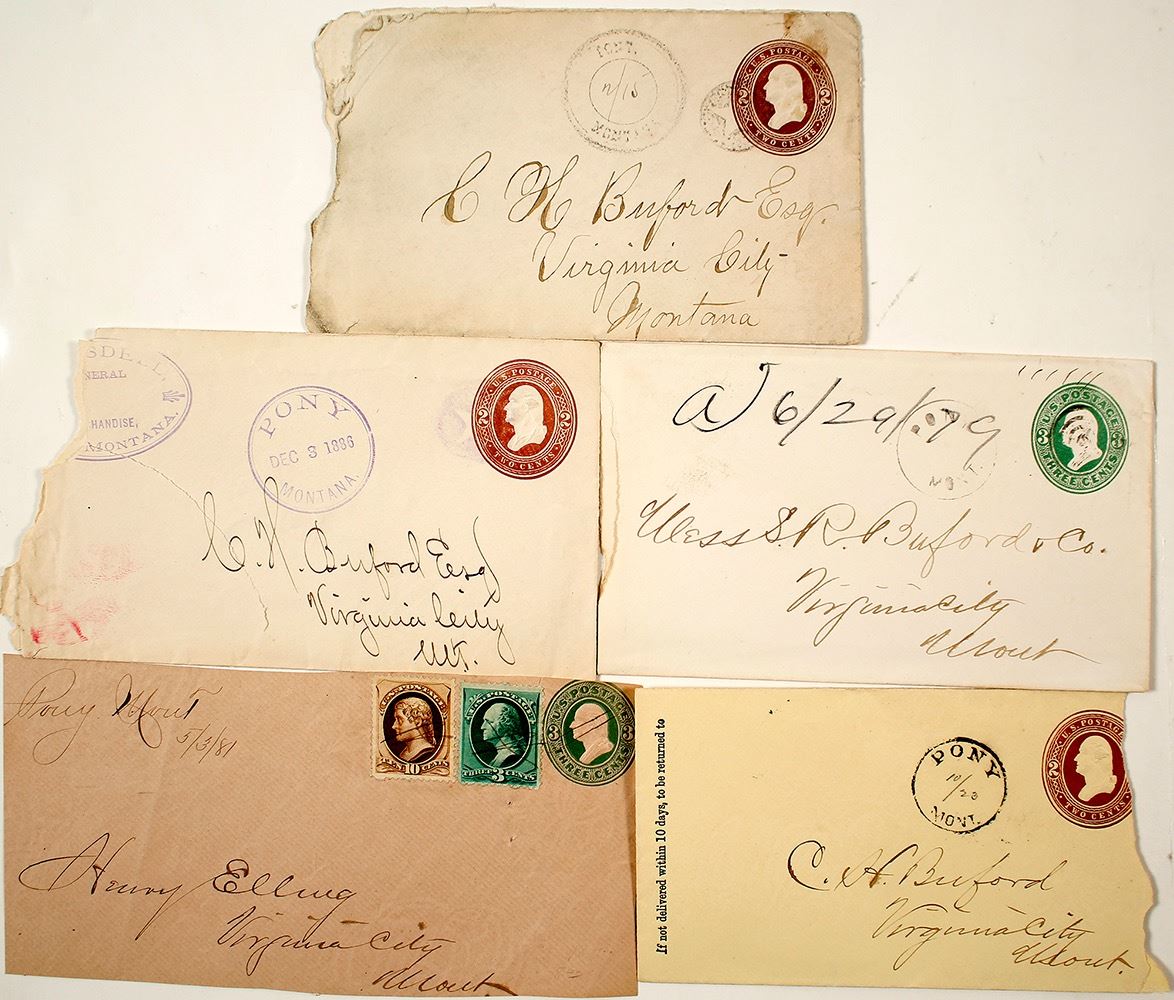 U.S. POSTAGE
2 2
TWO CENTS
PONY.
11/15
MONTANA
C H Buford Esq.
Virginia City
Montana
SDELL,
NERAL
HANDISE,
MONTANA.
PONY
DEC 3 1886
MONTANA.
U.S. POSTAGE
2 2
TWO CENTS
C. H. Buford Esq
Virginia City
Mt.
6/29/79
U.S. POSTAGE
3 3
THREE CENTS
Mess S. R. Buford & Co.
Virginia City
Mont
Pony Mont
5/3/81
U.S. POSTAGE
10 CENTS
U.S. POSTAGE
THREE 3 CENTS
U.S. POSTAGE
3 3
THREE CENTS
Henry Elling
Virginia City
Mont
If not delivered within 10 days, to be returned to
PONY
10/23
MONT.
U.S. POSTAGE
2
TWO CENTS
C. H. Buford
Virginia City
Mont.